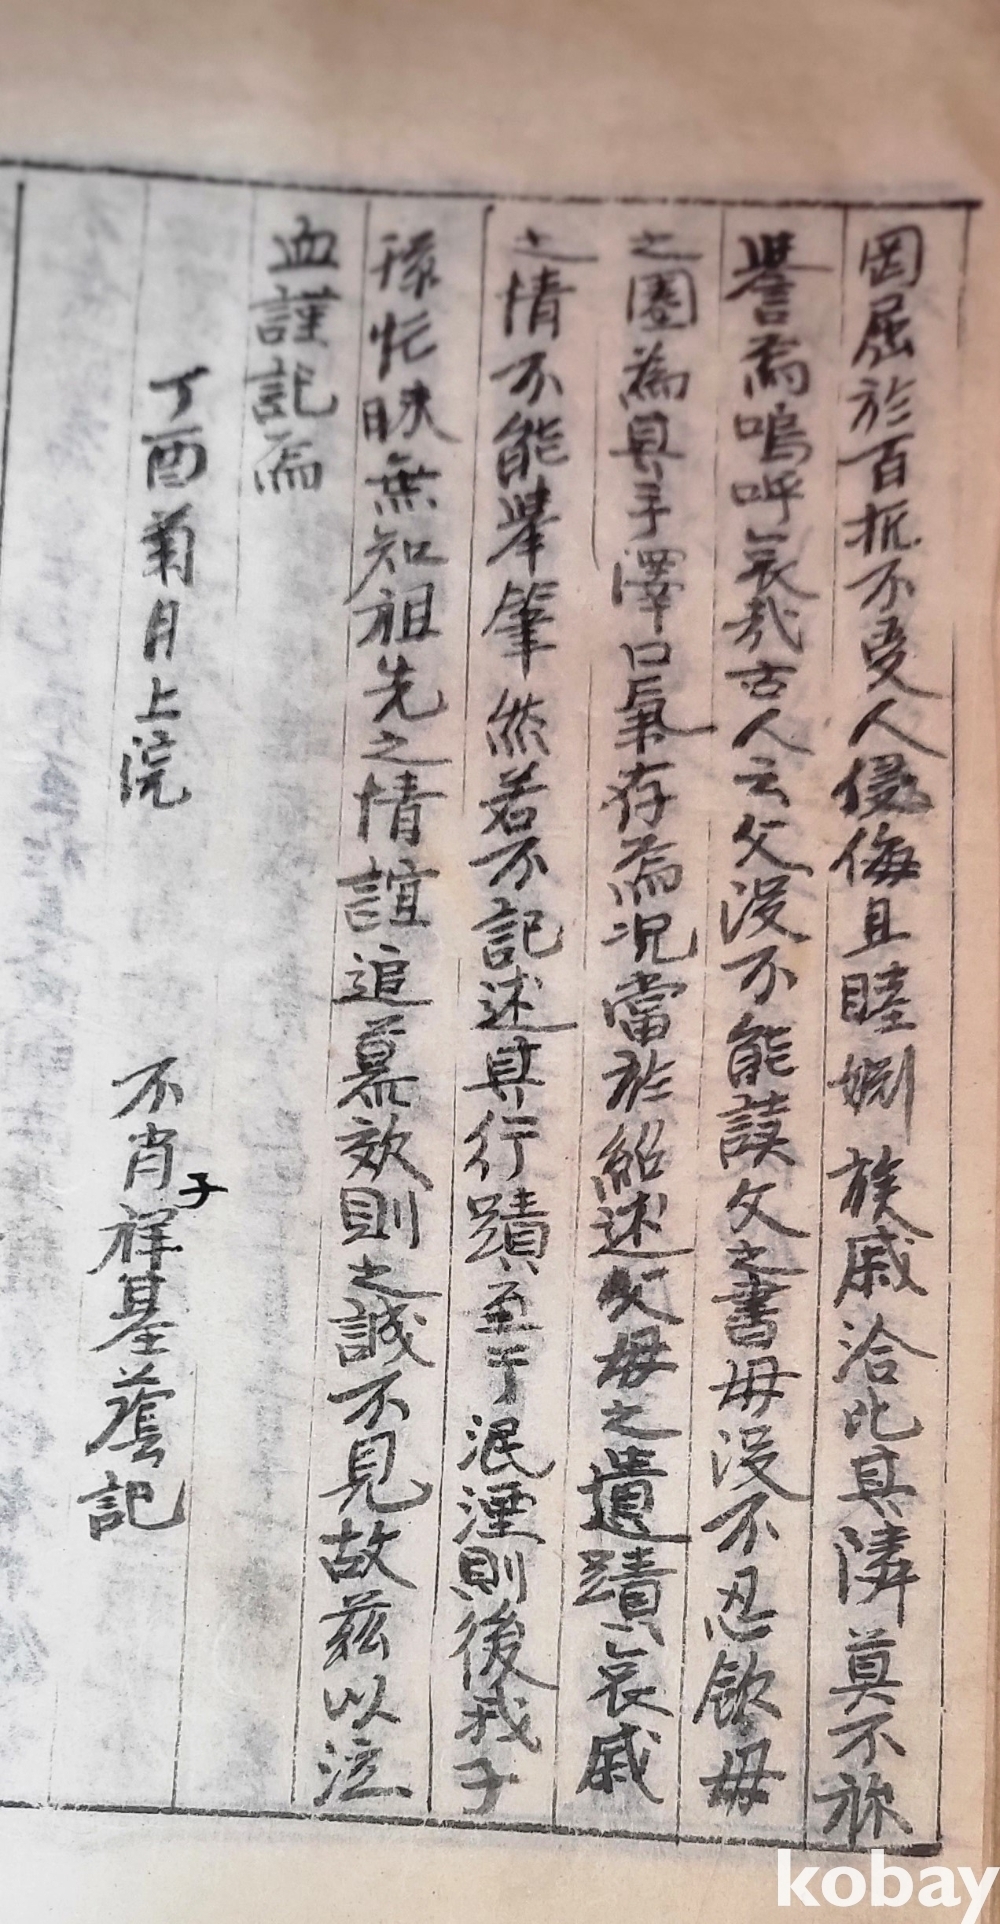 罔屈於百折不受人侵侮且睦婣族戚洽比其隣莫不称
譽焉嗚呼哀哉古人云父沒不能讀父之書母沒不忍飮母
之圈為其手澤口氣存焉况當於紹述父母之遺蹟哀戚
之情不能擧筆然若不記述其行蹟至于泯湮則後我子
孫怳昧無知祖先之情誼追慕效則之誠不見故茲以泣
血謹記焉
丁酉菊月上浣 不肖子祥基 記
kobay